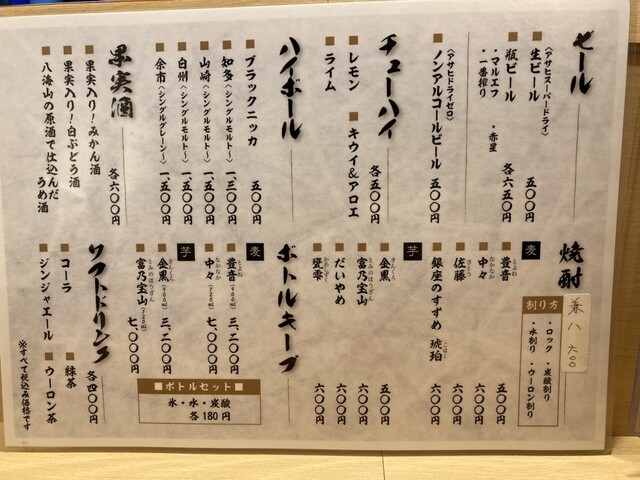 ビール
〈アサヒスーパードライ〉
■生ビール 五〇〇円
■瓶ビール 各六五〇円
・マルエフ ・赤星
・一番搾り
〈アサヒドライゼロ〉
■ノンアルコールビール 五〇〇円
チューハイ 各五〇〇円
■レモン ■キウイ&アロエ
■ライム
ハイボール
■ブラックニッカ 五〇〇円
■知多〈シングルモルト〉 一、三〇〇円
■山崎〈シングルモルト〉 一、五〇〇円
■白州〈シングルモルト〉 一、五〇〇円
■余市〈シングルグレーン〉 一、五〇〇円
果実酒 各六〇〇円
■果実入り!みかん酒
■果実入り!白ぶどう酒
■八海山の原酒で仕込んだ
うめ酒
焼酎
兼八 六〇〇
割り方
・ロック ・炭酸割り
・水割り ・ウーロン割り
麦
■豊音 五〇〇円
とよね
■中々 六〇〇円
なかなか
■佐藤 六〇〇円
さとう
■銀座のすずめ 琥珀 六〇〇円
こはく
芋
■金黒 五〇〇円
きんくろ
■富乃宝山 六〇〇円
とみのほうざん
■だいやめ 六〇〇円
■甕雫 六〇〇円
かめしずく
ボトルキープ
麦
■豊音(900ml) 三、二〇〇円
とよね
■中々(720ml) 七、〇〇〇円
なかなか
芋
■金黒(900ml) 三、二〇〇円
きんくろ
■富乃宝山(720ml) 七、〇〇〇円
とみのほうざん
■ボトルセット■
氷・水・炭酸
各180円
ソフトドリンク 各四〇〇円
■コーラ ■緑茶
■ジンジャエール ■ウーロン茶
※すべて税込み価格です